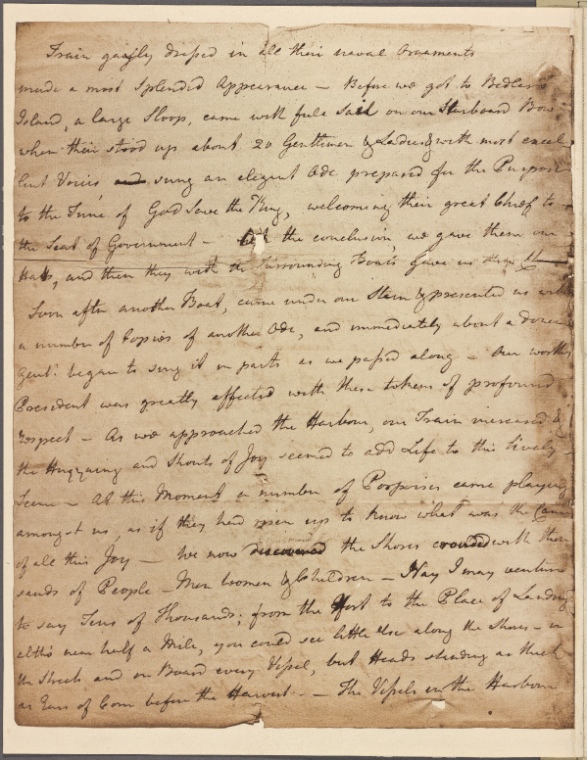 Train gayly dressed in all their naval Ornaments
made a most Splendid Appearance — Before we got to Bedlow's
Island, a large Sloop, came with full Sail on our Starboard Bow
when their stood up about 20 Gentlemen & Ladies & with most excel
lent Voices sung an elegent Ode prepared for the Purpose
to the Tune of God Save the King, welcoming their great Chief to
the Seat of Government — the conclusion, we gave them our
Hats, and then they with the Surrounding Boats gave us
Soon after another Boat, came under our Stern & presented us with
a number of Copies of another Ode, and immediately about a dozen
Gentn. began to sing it in parts as we passed along — Our worthy
President was greatly affected with these tokens of profound
respect — As we approached the Harbour, our Train increased &
the Huzzaing and Shouts of Joy seemed to add Life to this lively
Scene — At this Moment a number of Porpoises came playing
amongst us, as if they had risen up to know what was the Cause
of all this Joy — We now discovered the Shores crouded with thou
sands of People — Men Women & Children — Nay I may venture
to say Tens of Thousands: from the Fort to the Place of Landing
altho' near half a Mile, you could see little else along the Shores — in
the Streets and on Board every Vessel, but Heads standing as thick
as Ears of Corn before the Harvest. — The Vessels in the Harbour